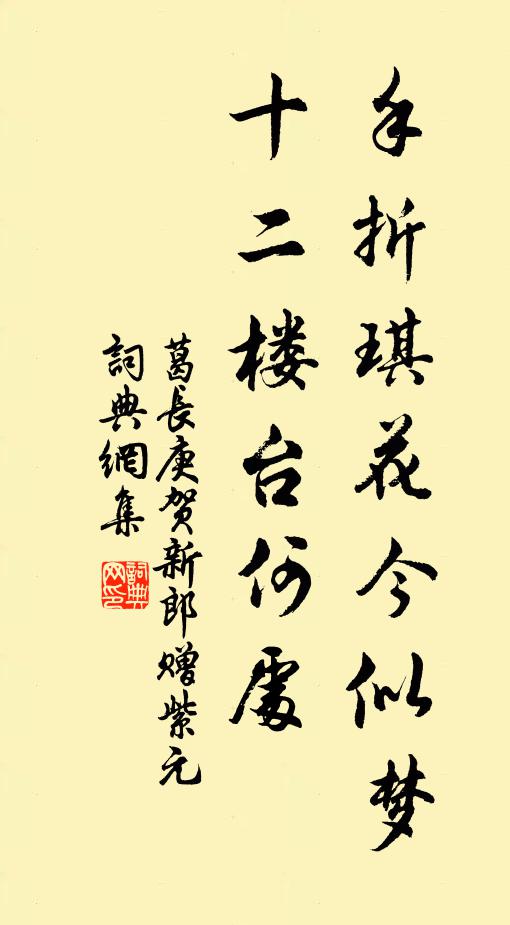 手折琪花今似梦
十二楼台何處
葛長庚贺新郎赠紫元
詞典網集
詞典网印